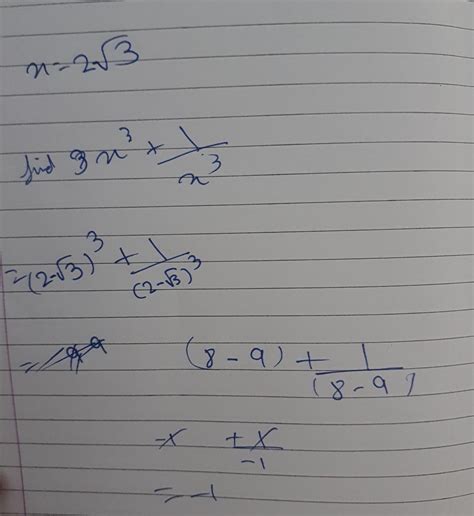 x=2√3
find 3x³ + 1/x³
=(2-√3)³ + 1/(2-√3)³
= (8-9) + 1/(8-9)
-x + x/-1
= -1